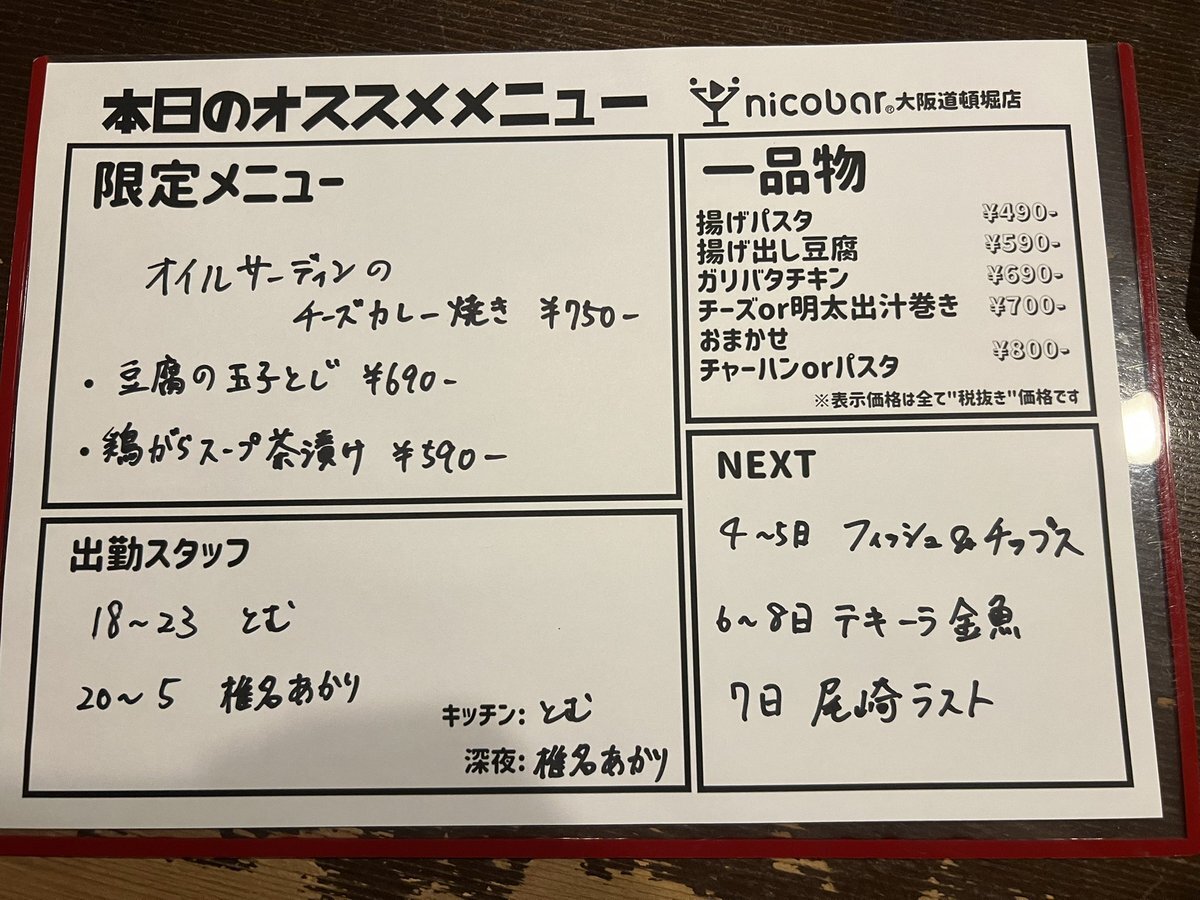 本日のオススメメニュー
nicobar® 大阪道頓堀店
限定メニュー
オイルサーディンの
チーズカレー焼き ¥750-
・豆腐の玉子とじ ¥690-
・鶏がらスープ茶漬け ¥590-
一品物
揚げパスタ ¥490-
揚げ出し豆腐 ¥590-
ガリバタチキン ¥690-
チーズor明太出汁巻き ¥700-
おまかせ
チャーハンorパスタ ¥800-
※表示価格は全て"税抜き"価格です
出勤スタッフ
18~23 とむ
20~5 椎名あかり
キッチン: とむ
深夜: 椎名あかり
NEXT
4~5日 フィッシュ&チップス
6~8日 テキーラ金魚
7日 尾崎ラスト